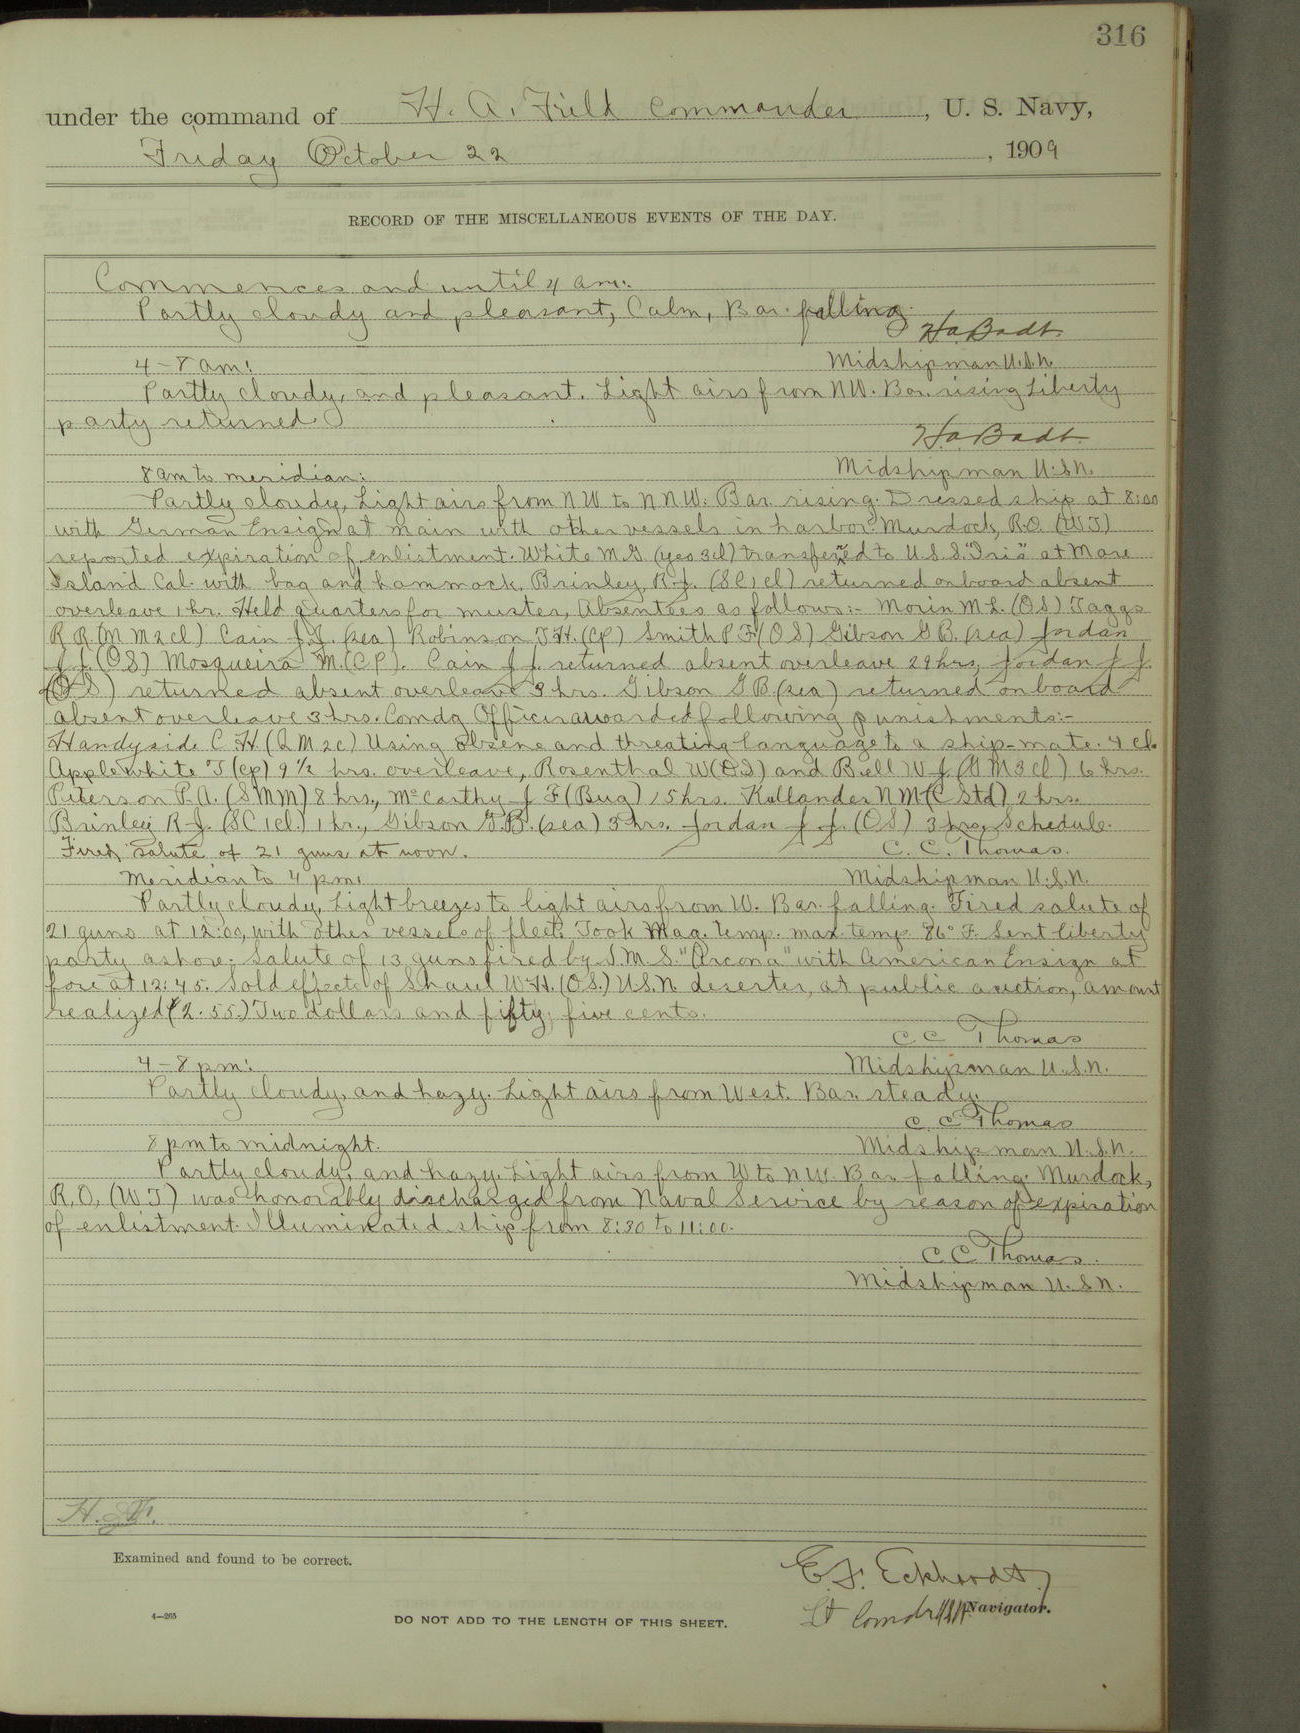 316
under the command of H. A. Field Commander, U. S. Navy,
Friday October 22, 1909
RECORD OF THE MISCELLANEOUS EVENTS OF THE DAY.
Commences and until 4 am:
Partly cloudy and pleasant, Calm, Bar. falling.
H.a. Badt.
4-8 am: Midshipman U.S.N.
Partly cloudy, and pleasant. Light airs from NW. Bar. rising Liberty
party returned
H.a. Badt
8 am to meridian: Midshipman U.S.N.
Partly cloudy, Light airs from NW to NNW. Bar. rising. Dressed ship at 8:00
with German Ensign at main with other vessels in harbor. Murdock, R.O. (WT)
reported expiration of enlistment. White M G (yeo 3cl) transferred to U.S.S. "Iris" at Mare
Island Cal. with bag and hammock. Brinley, R.J. (SC1cl) returned onboard absent
overleave 1 hr. Held quarters for muster, Absentees as follows:- Morin M.L. (OS) Taggs
R R. (MM2cl) Cain J.J. (sea) Robinson J.H. (CP) Smith P F (OS) Gibson G B. (sea) Jordan
J J. (OS) Mosqueira M. (CP). Cain J J. returned absent overleave 29 hrs, Jordan J J.
(OS) returned absent overleave 3 hrs. Gibson G.B (sea) returned onboard
absent overleave 3 hrs. Comdg Officer awarded following punishments:-
Handyside C H (QM2c) Using obsene and threating language to a ship-mate. 4 cl.
Applewhite T (cp) 9 1/2 hrs. overleave, Rosenthal W (OS) and Bell W J. (GM3cl) 6 hrs.
Peterson P.A. (SMM) 8 hrs., McCarthy J F (Bug) 15 hrs. Kollander N M (C Std) 2 hrs.
Brinley R J. (SC1cl.) 1 hr., Gibson G.B. (sea) 3 hrs. Jordan J J. (OS) 3 hrs, Schedule.
Fired salute of 21 guns at noon. C. C. Thomas.
Meridian to 4 pm: Midshipman U.S.N.
Partly cloudy, Light breezes to light airs from W. Bar. falling. Fired salute of
21 guns at 12:00, with other vessels of fleet. Took Mag. temp. max. temp 86° F. Sent liberty
party ashore. Salute of 13 guns fired by S.M.S. "Arcona" with American Ensign at
fore at 12:45. Sold effects of Shaul W.H. (OS.) U.S.N. deserter, at public auction, amount
realized ($2.55) Two dollars and fifty, five cents.
C C Thomas
4-8 pm: Midshipman U.S.N.
Partly cloudy, and hazy. Light airs from West. Bar. steady.
C. C. Thomas
8 pm to midnight. Midshipman U.S.N.
Partly cloudy, and hazy. Light airs from W to NW. Bar falling. Murdock,
R,O, (WT) was honorably discharged from Naval Service by reason of expiration
of enlistment. Illuminated ship from 8:30 to 11:00.
C C Thomas.
Midshipman U.S.N.
H.
Examined and found to be correct.
E. F. Eckhardt,
Lt Comdr USN Navigator.
4—265
DO NOT ADD TO THE LENGTH OF THIS SHEET.